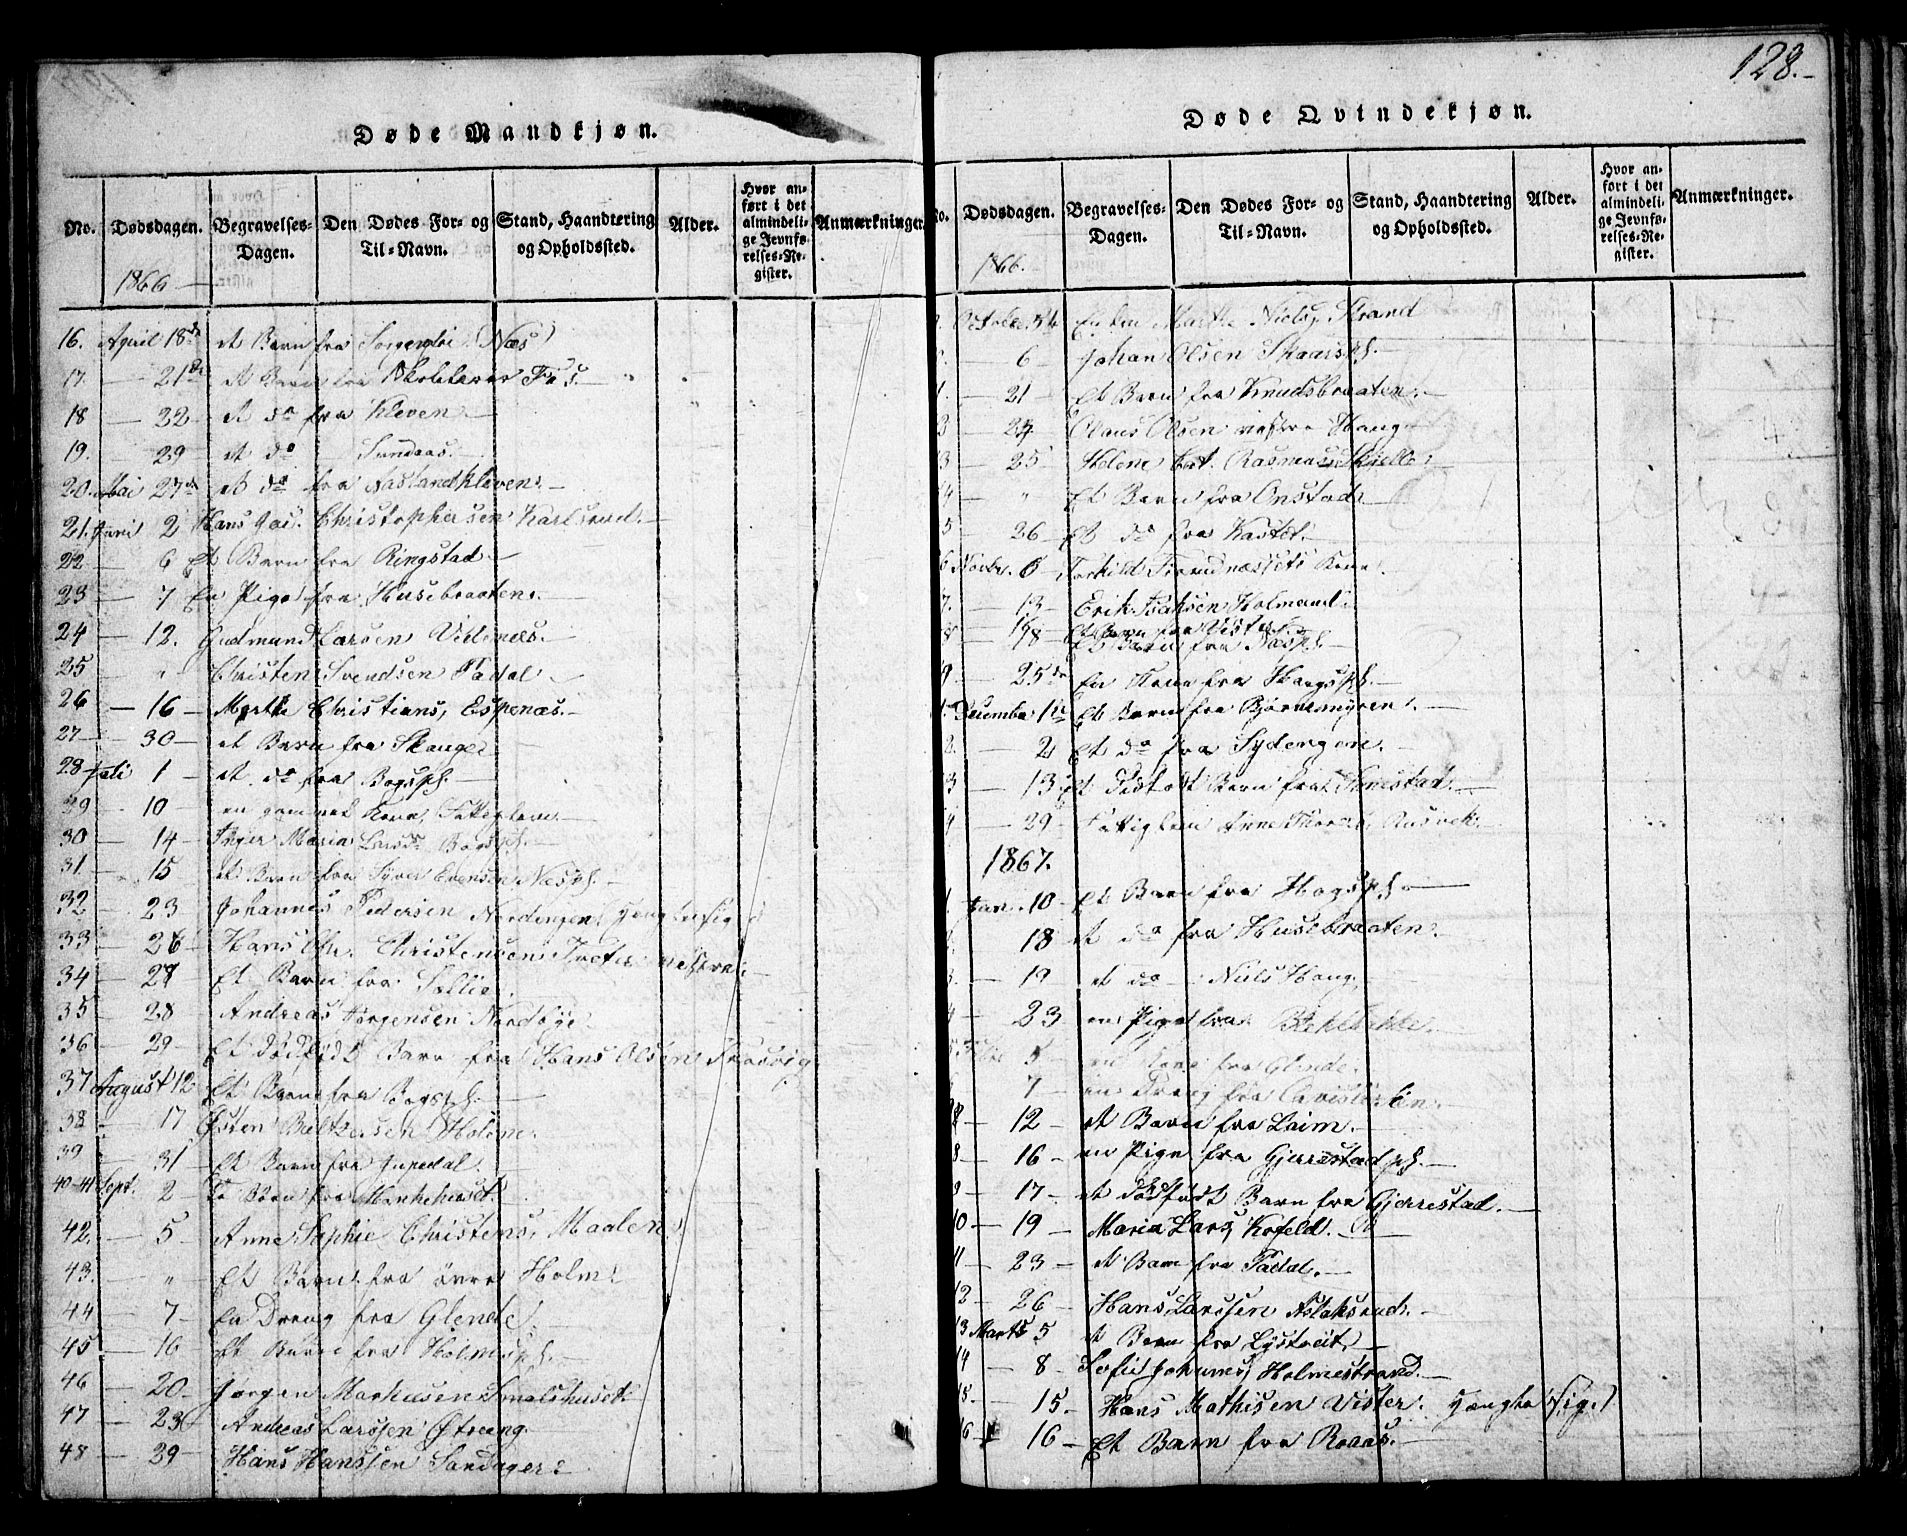 128.
Døde Mandkjøn.
No. Dødsdagen. Begravelses-Dagen. Den Dødes For- og Til-Navn. Stand, Haandtering og Opholdssted. Alder. Hvor anført i det almindelige Jevnførelses-Register. Anmærkninger.
1866
16. April 18de et Barn fra Næs
17. — 21de et Barn fra
18 — 22 et do fra Kleven
19. — 29 et do Sundaas.
20. Mai 27de et do fra Næslandkleven.
21. Juni 2 Hans Jac. Christophersen Karlsrud.
22 — 6 Et Barn fra Ringstad
23 — 7 En Pige fra Husebraaten.
24 — 12. Gudmund Larsen Videnæs.
25 — " Christen Svendsen Tadal
26 — 16 — Marthe Christians, Espenæs.
27 — 30 — et Barn fra Skauge
28 Juli 1 et do fra Bogsph.
29 — 10 en gammel Kone, Fattiglem.
30 — 14 Inger Maria Larsdr Bogsph.
31 — 15 et Barn fra Syver Evensen Næsph.
32 — 23 Johannes Pedersen Nordengen (
33 — 26 Hans Chr. Christensen Tveter vestre
34 — 27 Et Barn fra Sollie.
35 — 28 Andreas Jørgensen Nordbye
36 — 29 — Et dødfødt Barn fra Hans Olsen
37 August 12 Et Barn fra Bogsph.
38 — 17 Østen Holene.
39 — 31 Et Barn fra
40-41 Sept. 2 To Børn fra Munkehuset.
42. — 5 Anne Sophie Christens, Maalen
43. — " Et Barn fra øvre Holm
44 — 7 En Dreng fra Glende.
45 — 16 Et Barn fra Holmsph.
46 — 20. Jørgen Markusen Smalshuset.
47 — 23 Andreas Larssen Østreng.
48 — 29 — Hans Hanssen Sandager
Døde Qvindekjøn.
No. Dødsdagen. Begravelses-Dagen. Den Dødes For- og Til-Navn. Stand, Haandtering og Opholdssted. Alder. Hvor anført i det almindelige Jevnførelses-Register. Anmærkninger.
1866.
Enken Marthe Niels, Strand
— 6 Johan Olsen Skaarsph.
— 21 Et Barn fra Knudsbraaten.
— 24. Claus Olsen vestre Haug
3 — 25 Helene Cat. Rasmus,
4 — " Et Barn fra Onstad
5 — 26 — Et do fra Kastet.
6 Novbr. 6 — Torhild Kone.
7. — 13 — Erik Isaksen Holmand.
Et Barn fra Vister
8 — 18 — Et Barn fra Næsph.
9. — 25de En Kone fra Haugsph.
December 1te Et Barn fra Bjørnemyren
2. — 2 Et do fra Sydengen.
3 — 13 Et dødfødt Barn fra
4 — 29 — Fattiglem Anne
1867.
1 Jan. 10 Et Barn fra Hogsph.
18 et do fra Husebraaten.
— 19 et do Niels Haug
4 — 23 en Pige fra
5 en Kone fra Glende.
— 7 en Dreng fra
— 12 et Barn fra Laim.
8 — 16 — en Pige fra Gjerrestadph.
9 — 17 — et dødfødt Barn fra Gjerrestad.
10 — 19 — Maria Lars, Kofeld.
11 — 23 et Barn fra Tadal.
12 — 26 — Hans Larssen Aslaksrud.
13 Marts 5 et Barn fra
14 — 8 Sofie Johannes, Holmestrand.
15. — 15. Hans Mathisen Vister.
16 — 16 — Et Barn fra Roaas.